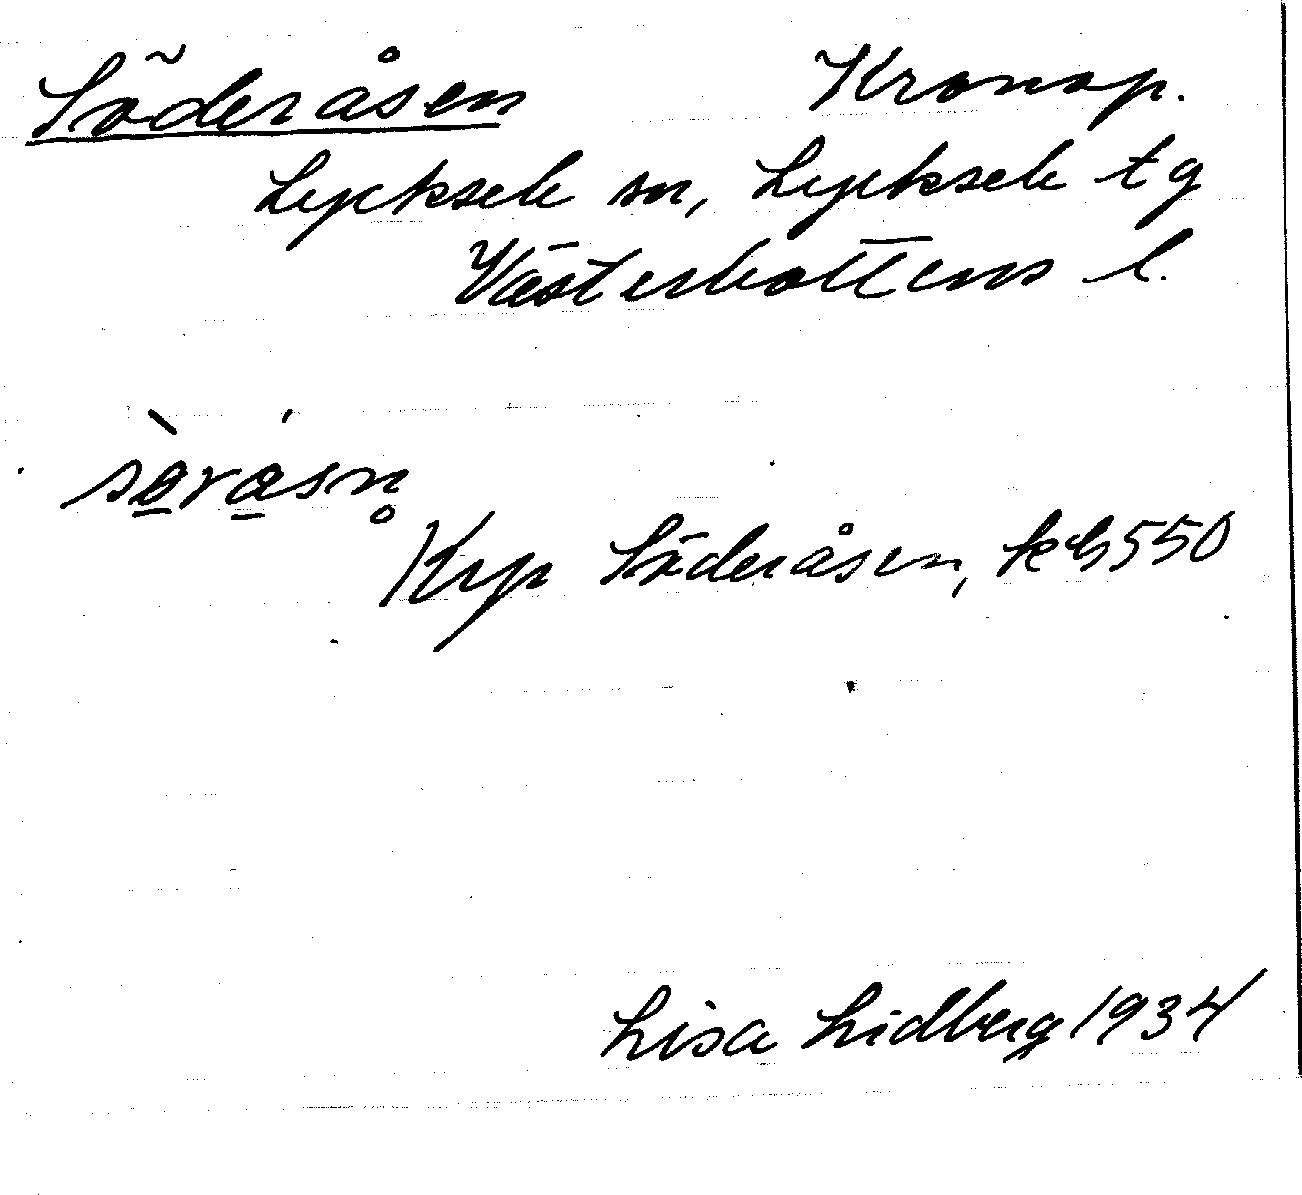 Söderåsen Kronop.
Lycksele sn, Lycksele tg
Västerbottens l.
sø̀rásn̥
Krp Söderåsen, keb 550
Lisa Lidberg 1934